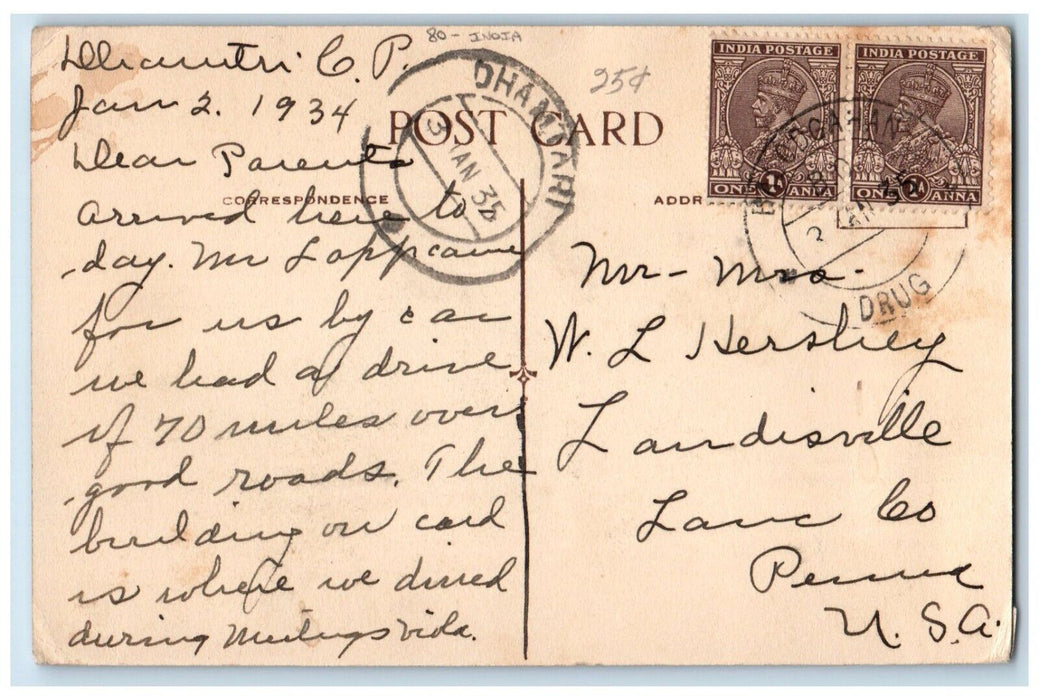 80 - INDIA
25¢
Dhamtri C.P.
Jan 2. 1934
Dear Parents
arrived here to
day. Mr Lapp came
for us by car
we had a drive
of 70 miles over
good roads. The
building on card
is where we dined
during
POST CARD
CORRESPONDENCE
ADDR
DHAMTARI
3 JAN 35
INDIA POSTAGE
ONE 1A ANNA
INDIA POSTAGE
ONE 1A ANNA
2 JAN 35
DRUG
Mr - Mrs -
W. L Hershey
Landisville
Lanc Co
Penna
U. S. A.